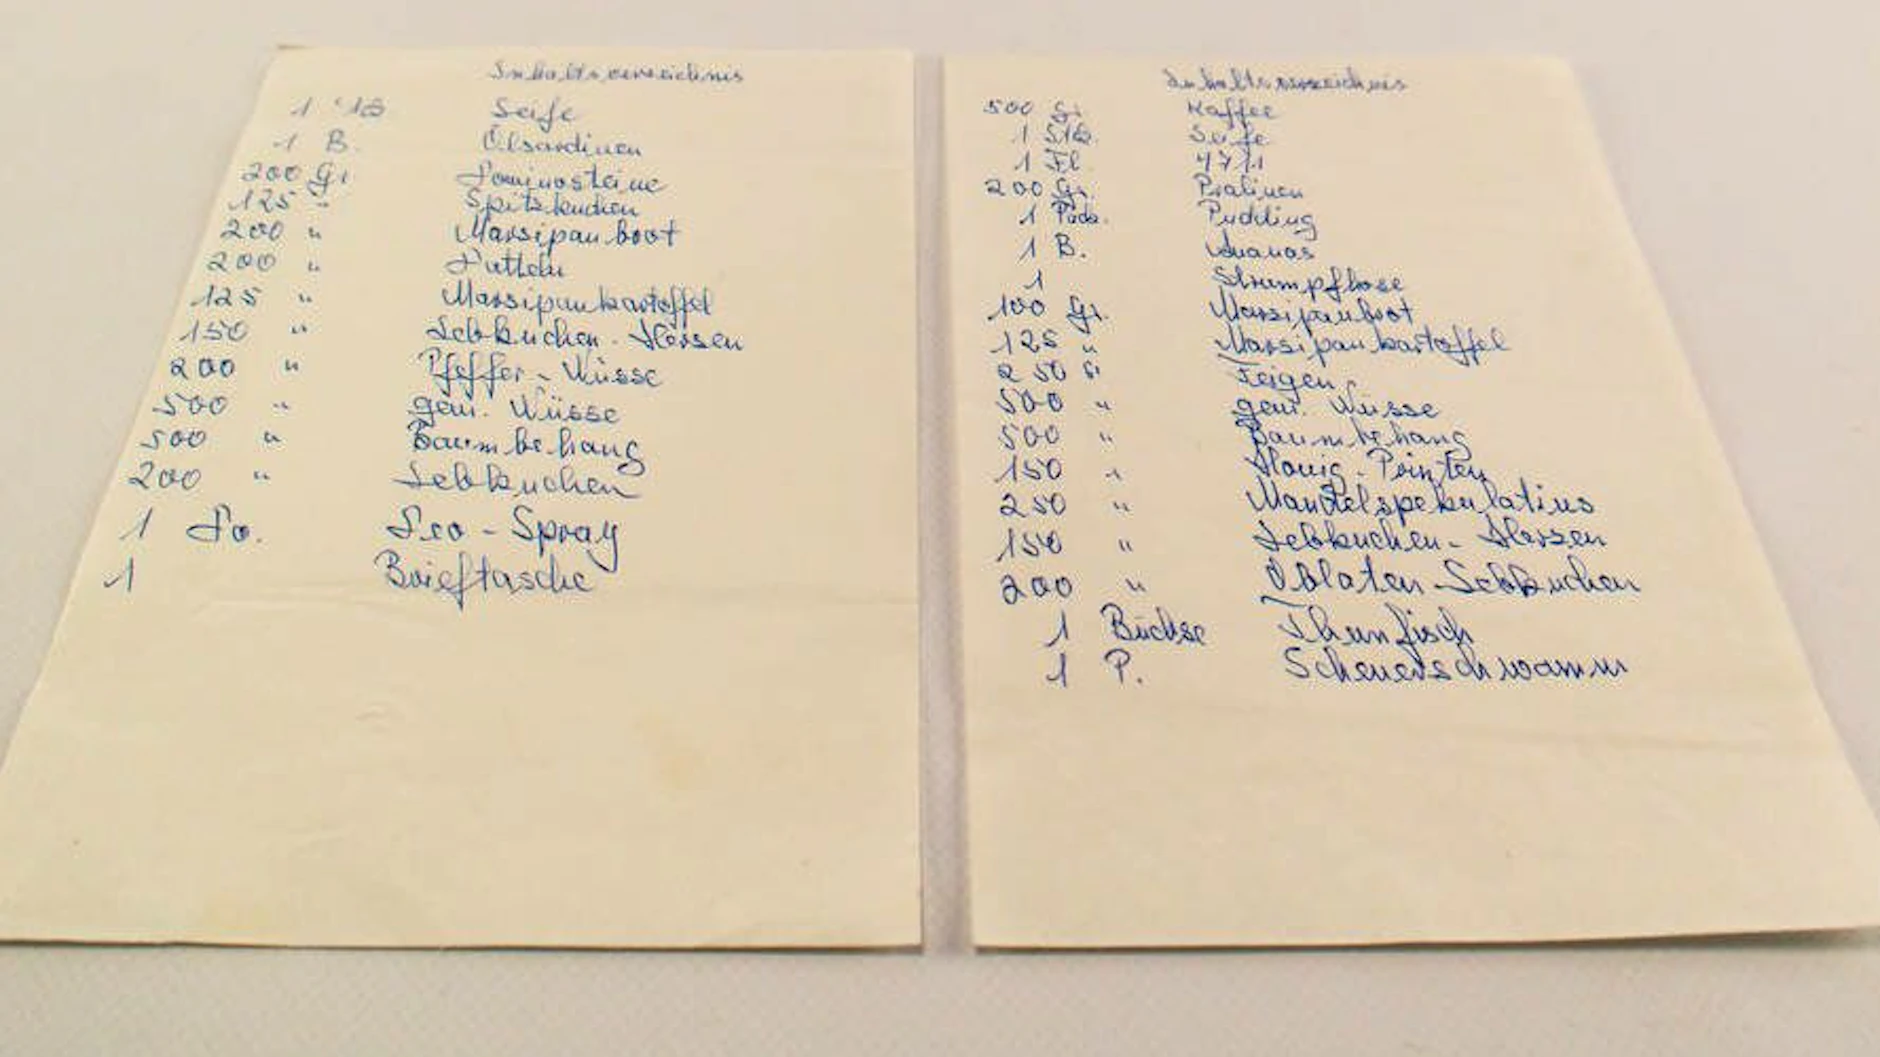 Inhaltsverzeichnis
1 Stk Seife
1 B. Ölsardinen
200 Gr Dominosteine
125 " Spitzkuchen
200 " Marzipanbrot
200 " Datteln
125 " Marzipankartoffel
150 " Lebkuchen-Herzen
200 " Pfeffer-Nüsse
500 " gem. Nüsse
500 " Baumbehang
200 " Lebkuchen
1 Do. Deo-Spray
1 Brieftasche
Inhaltsverzeichnis
500 Gr Kaffee
1 Stk. Seife
1 Fl. 4711
200 Gr. Pralinen
1 Pudding
1 B. Ananas
1 Strumpfhose
100 Gr. Marzipanbrot
125 " Marzipankartoffel
250 Gr Feigen
500 " gem. Nüsse
500 " Baumbehang
150 " Honig-Printen
250 " Mandelspekulatius
150 " Lebkuchen-Herzen
200 " Oblaten-Lebkuchen
1 Büchse Thunfisch
1 P. Scheuerschwamm